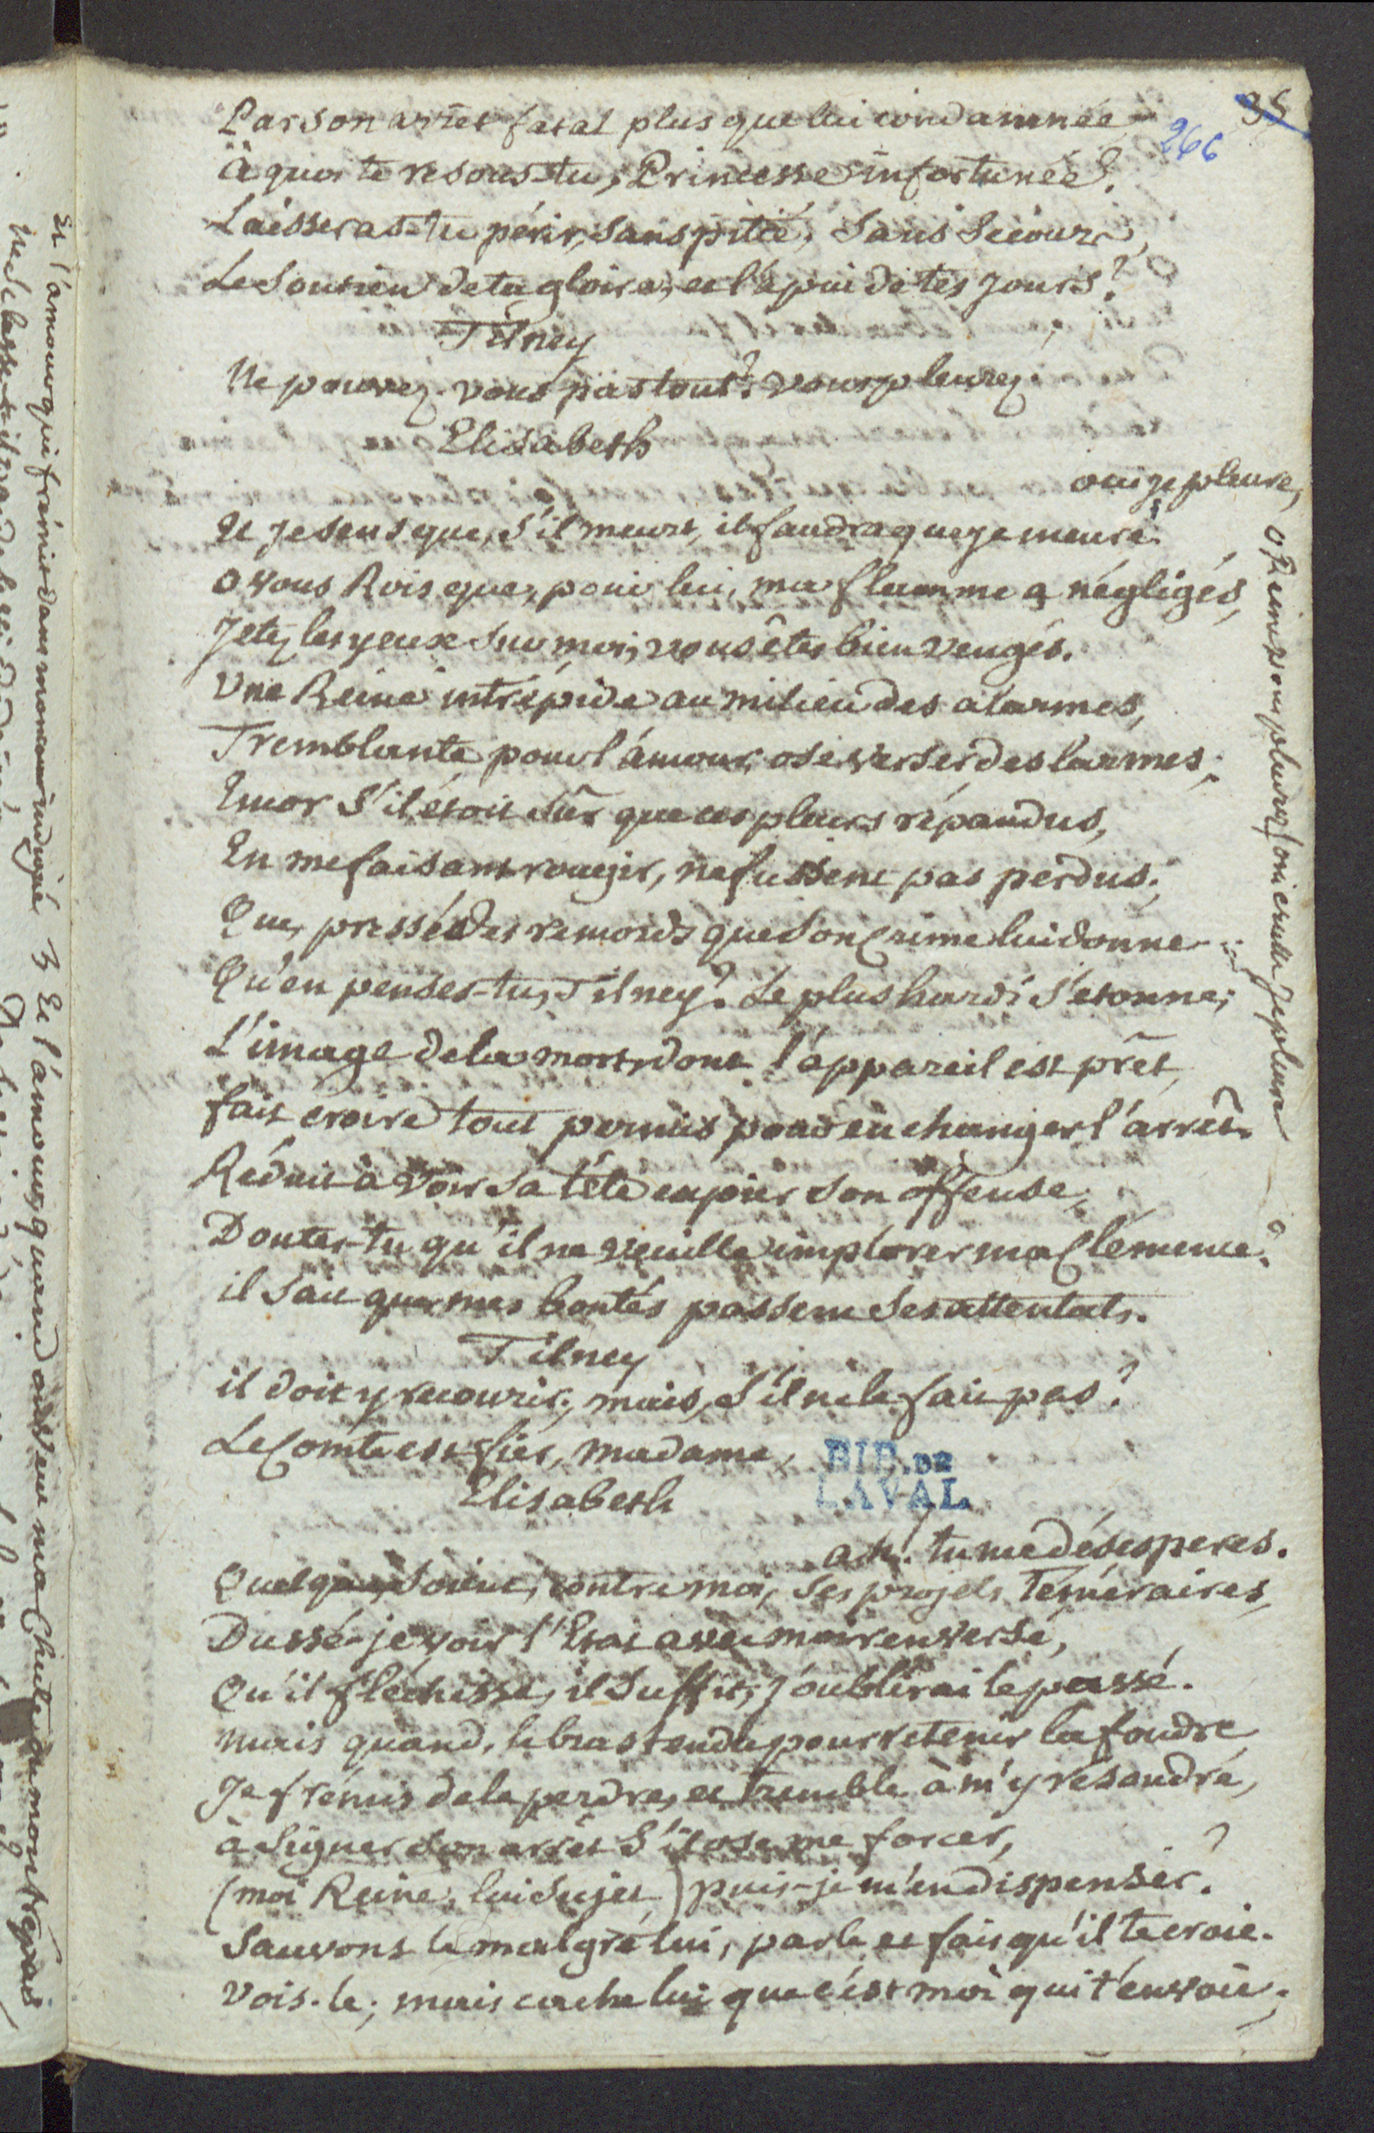 95
266
Par son arrêt fatal plus que lui condamnée
à quoi te resous-tu, Princesse infortunée?
Laisseras-tu périr, sans pitié, sans secours,
Le soutien de ta gloire, et l'apui de tes jours?
Tilney
Ne pouvez-vous pas tout? vous pleurez.
Elisabeth
oui je pleure,
Et je sens que, s'il meurt, il faudra que je meure.
o vous Rois que, pour lui, ma flamme a négligés,
Jetez les yeux sur moi, vous êtes bien vengés.
Une Reine intrépide au milieu des alarmes,
Tremblante pour l'amour, ose verser des larmes;
Encor s'il étoit sûr que ces pleurs répandus,
En me faisant rougir, ne fussent pas perdus;
Que, pressé des remords que son Crime lui donne...
Qu'en penses-tu, Tilney? Le plus hardi s'etonne;
L'image de la mort, dont l'appareil est prêt,
fait croire tout permis pour en changer l'arrêt.
Réduit à voir sa tête expier son offense,
Doutes-tu qu'il ne veuille implorer ma Clémence?
il sait que mes bontés passent ses attentats.
Tilney
il doit y recourir; mais, s'il ne le fait pas?
Le Comte est fier, madame,
BIB. DE
LAVAL
Elisabeth
ah! tu me désesperes.
Quelques soient, contre moi, ses projets Téméraires,
Dussé-je voir l'Etat avec moi renversé,
Qu'il fléchisse, il suffit, j'oublirai le passé.
mais quand, le bras tendu pour retenir la foudre
Je frémis de le perdre, et tremble à m'y résoudre,
à signer son arrêt s'il ose me forcer,
(moi Reine, lui sujet,) puis-je m'en dispenser?
Sauvons le malgré lui, parle et fais qu'il te croie.
Vois-le; mais cache lui que c'est moi qui t'envoie;
vous pleurez / oui cruelle je pleure
Et l'amour qui frémit dans mon cœur indigné
Et l'amour, quand on veut ma Chute ou mon trépas